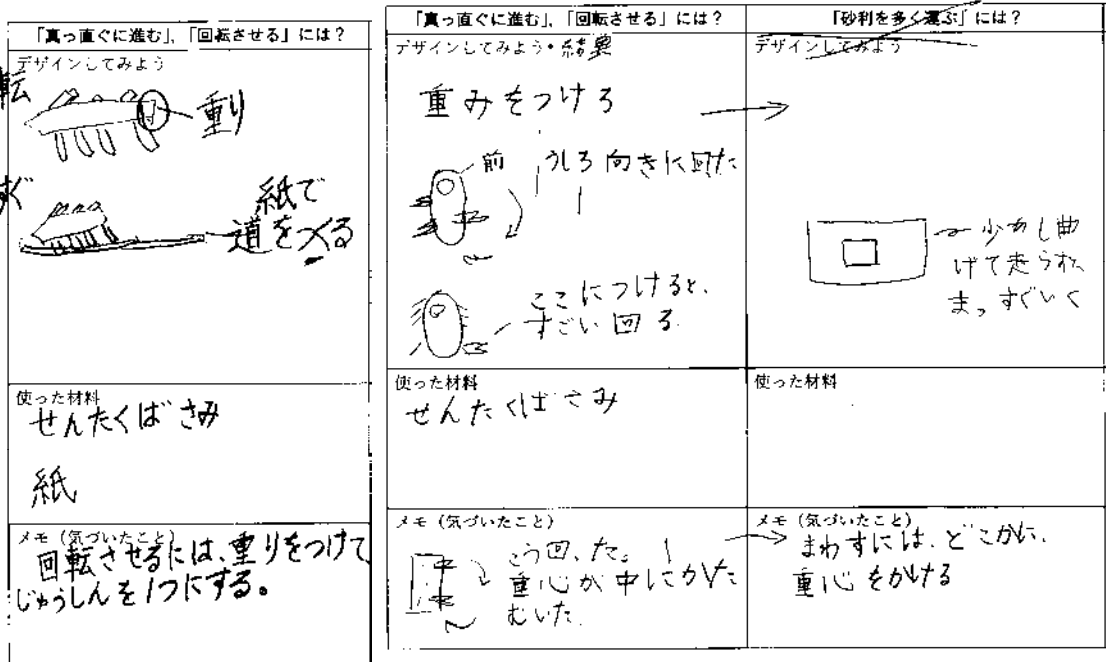 「真っ直ぐに進む」、「回転させる」には？
デザインしてみよう
転
重り
すぐ
紙で
道をつくる
使った材料
せんたくばさみ
紙
メモ（気づいたこと）
回転させるには、重りをつけて
じゅうしんを1つにする。
「真っ直ぐに進む」、「回転させる」には？
デザインしてみよう・結果
重みをつける
前
うしろ向きに回た
ここにつけると、
すごい回る
使った材料
せんたくばさみ
メモ（気づいたこと）
こう回った。
重心が中にかた
むいた
「砂利を多く運ぶ」には？
デザインしてみよう
少し曲
げて走らすと
まっすぐいく
使った材料
メモ（気づいたこと）
まわすには、どこかに、
重心をかける